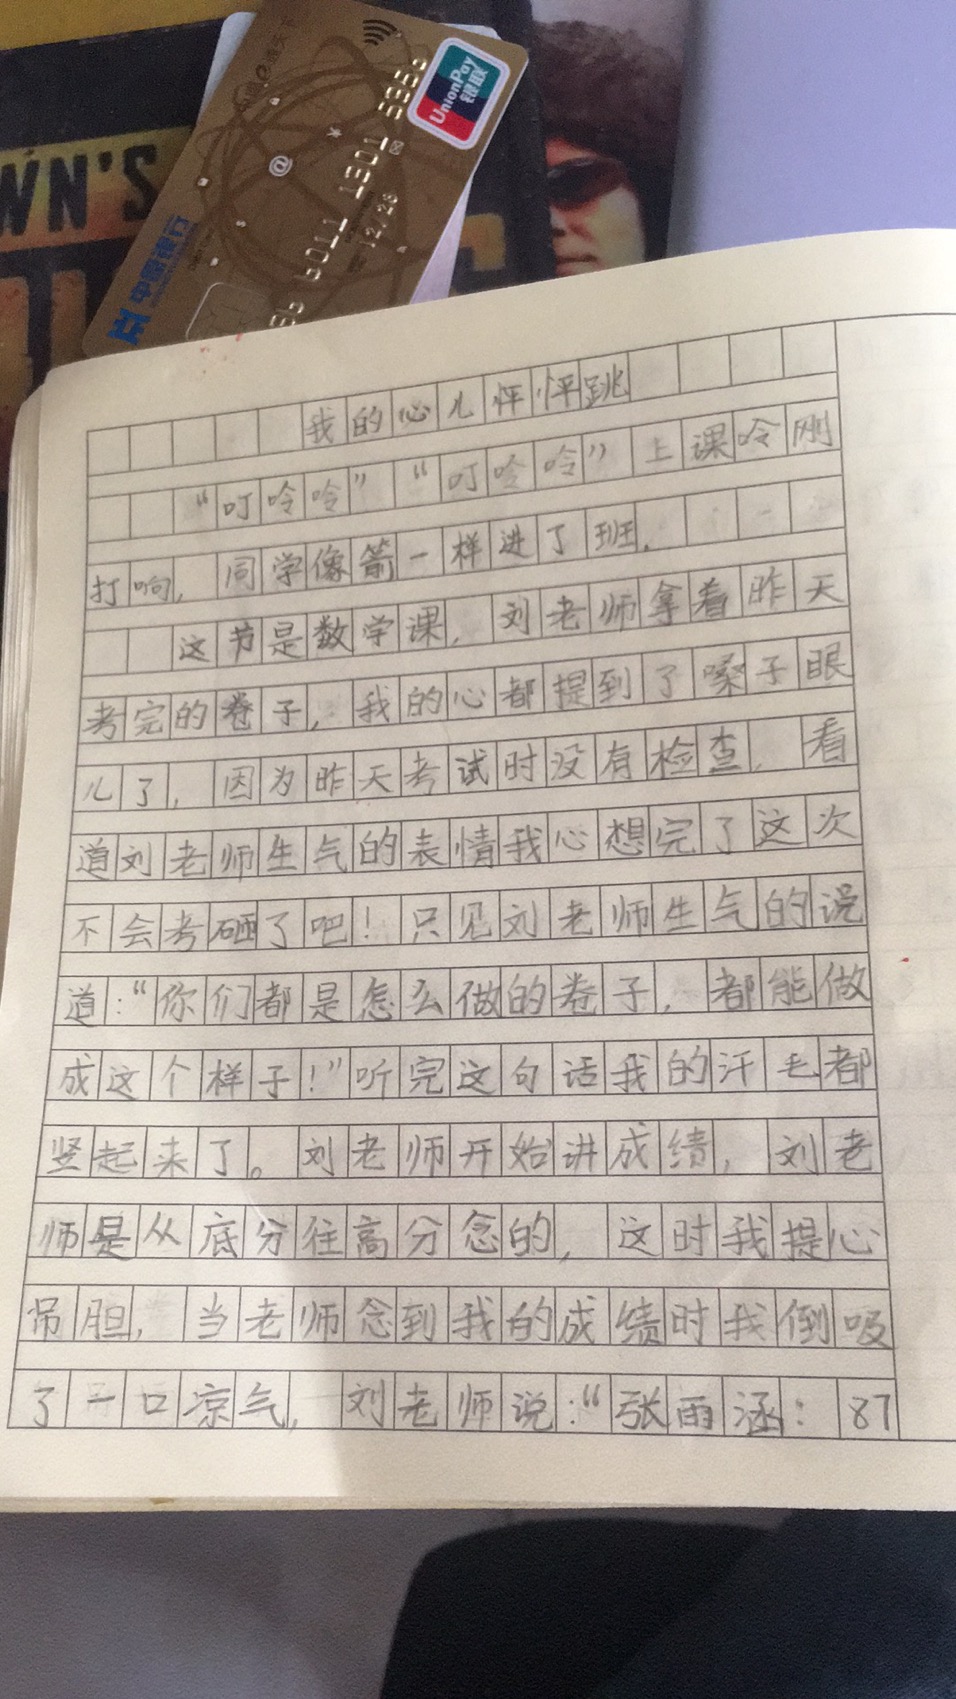 WN'S
UnionPay
银联
12/28
我的心儿怦怦跳
“叮呤呤”“叮呤呤”上课呤刚
打响，同学像箭一样进了班．
这节是数学课，刘老师拿着昨天
考完的卷子，我的心都提到了嗓子眼
儿了，因为昨天考试时没有检查，看
道刘老师生气的表情我心想完了这次
不会考砸了吧！只见刘老师生气的说
道：“你们都是怎么做的卷子，都能做
成这个样子！”听完这句话我的汗毛都
竖起来了。刘老师开始讲成绩，刘老
师是从底分往高分念的，这时我提心
吊胆，当老师念到我的成绩时我倒吸
了一口凉气，刘老师说：“张雨涵：87